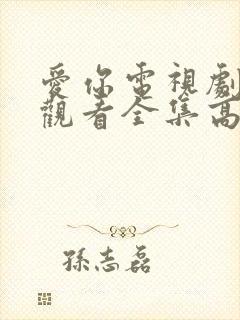 愛你電視劇
觀看全集高
孫志磊